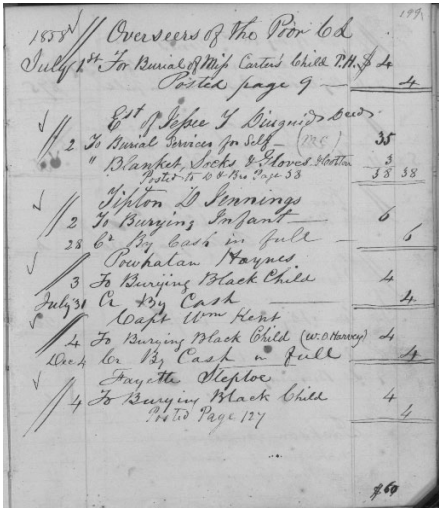 199
1858 Overseers of the Poor Cd
July 1st For Burial of Miss Carter's Child P.H. $ 4
Posted page 9 — 4
Est of Jessee T Diuguid Decd
2 To Burial Services for Self — (M C) 35
" Blanket, Socks & Gloves 3
Posted to D & Bro Page 38 38 38
Tipton D Jennings
2 To Burying Infant — 6
28 Cr By Cash in full — 6
Powhatan Haynes
3 To Burying Black Child 4
July 31 Cr By Cash — 4
Capt Wm Kent
4 To Burying Black Child (W.O Harvey) 4
Dec 4 Cr By Cash in full 4
Fayette Steptoe
4 To Burying Black Child 4
Posted Page 127 4
$60